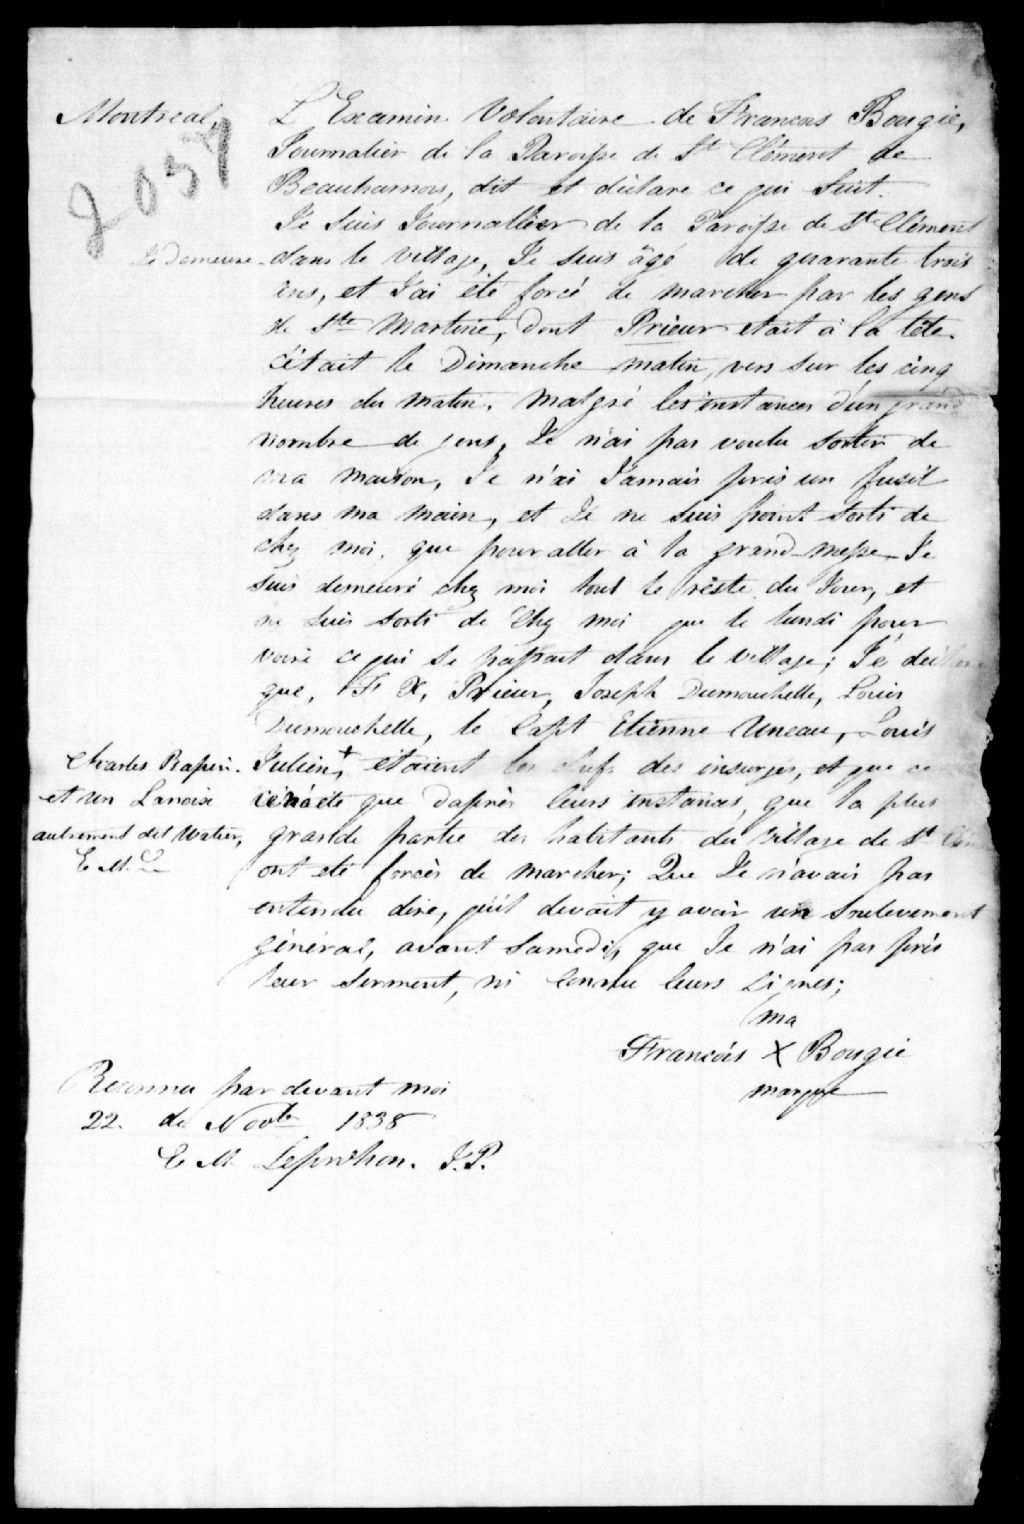 Montreal,
2057
L'Examin Volontaire de Francois Bougie,
Journalier de la Paroisse de St Clément de
Beauharnois, dit et déclare ce qui suit.
Je suis Journallier de la Paroisse de Ste Clément
Je demeure dans le village, Je suis âgé de quarante trois
ans, et J'ai été forcé de marcher par les gens
de Ste Martine, dont Prieur etait à la tête.
C'était le Dimanche matin, vers sur les cinq
heures du matin. Malgré les instances d'un grand
nombre de gens, Je n'ai pas voulu sortir de
ma maison, Je n'ai Jamais pris un fusil
dans ma main, et Je ne suis point sorti de
chez moi, que pour aller à la grand-messe. Je
suis demeuré chez moi tout le rèste du Jour, et
ne suis sorti de chez moi que le lundi pour
voire ce qui se passait dans le village; Je déclare
que, F. X, Prieur, Joseph Dumouchelle, Louis
Dumouchelle, le Capt Etienne Uneau, Louis
Julien, + étaient les chefs des insurgés, et que ce
Charles Rapin.
et un Lanoise
autrement dit Watier,
E M. L
n'a été que d'après leurs instances, que la plus
grande partie des habitants du village de St Clém
ont été forcès de marcher; Que Je n'avais pas
entendu dire, qu'il devait y avoir un soulevement
général, avant Samedi, que Je n'ai pas pris
leur serment, ni connu leurs signes;
ma
Francois X Bougie
marque
Reconnu par devant moi
22. de Novbr 1838
E M Leprohon. J.P.